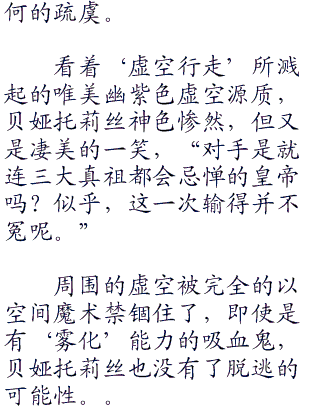 何的疏虞。
看着‘虚空行走’所溅
起的唯美幽紫色虚空源质，
贝娅托莉丝神色惨然，但又
是凄美的一笑，“对手是就
连三大真祖都会忌惮的皇帝
吗？似乎，这一次输得并不
冤呢。”
周围的虚空被完全的以
空间魔术禁锢住了，即使是
有‘雾化’能力的吸血鬼，
贝娅托莉丝也没有了脱逃的
可能性。。